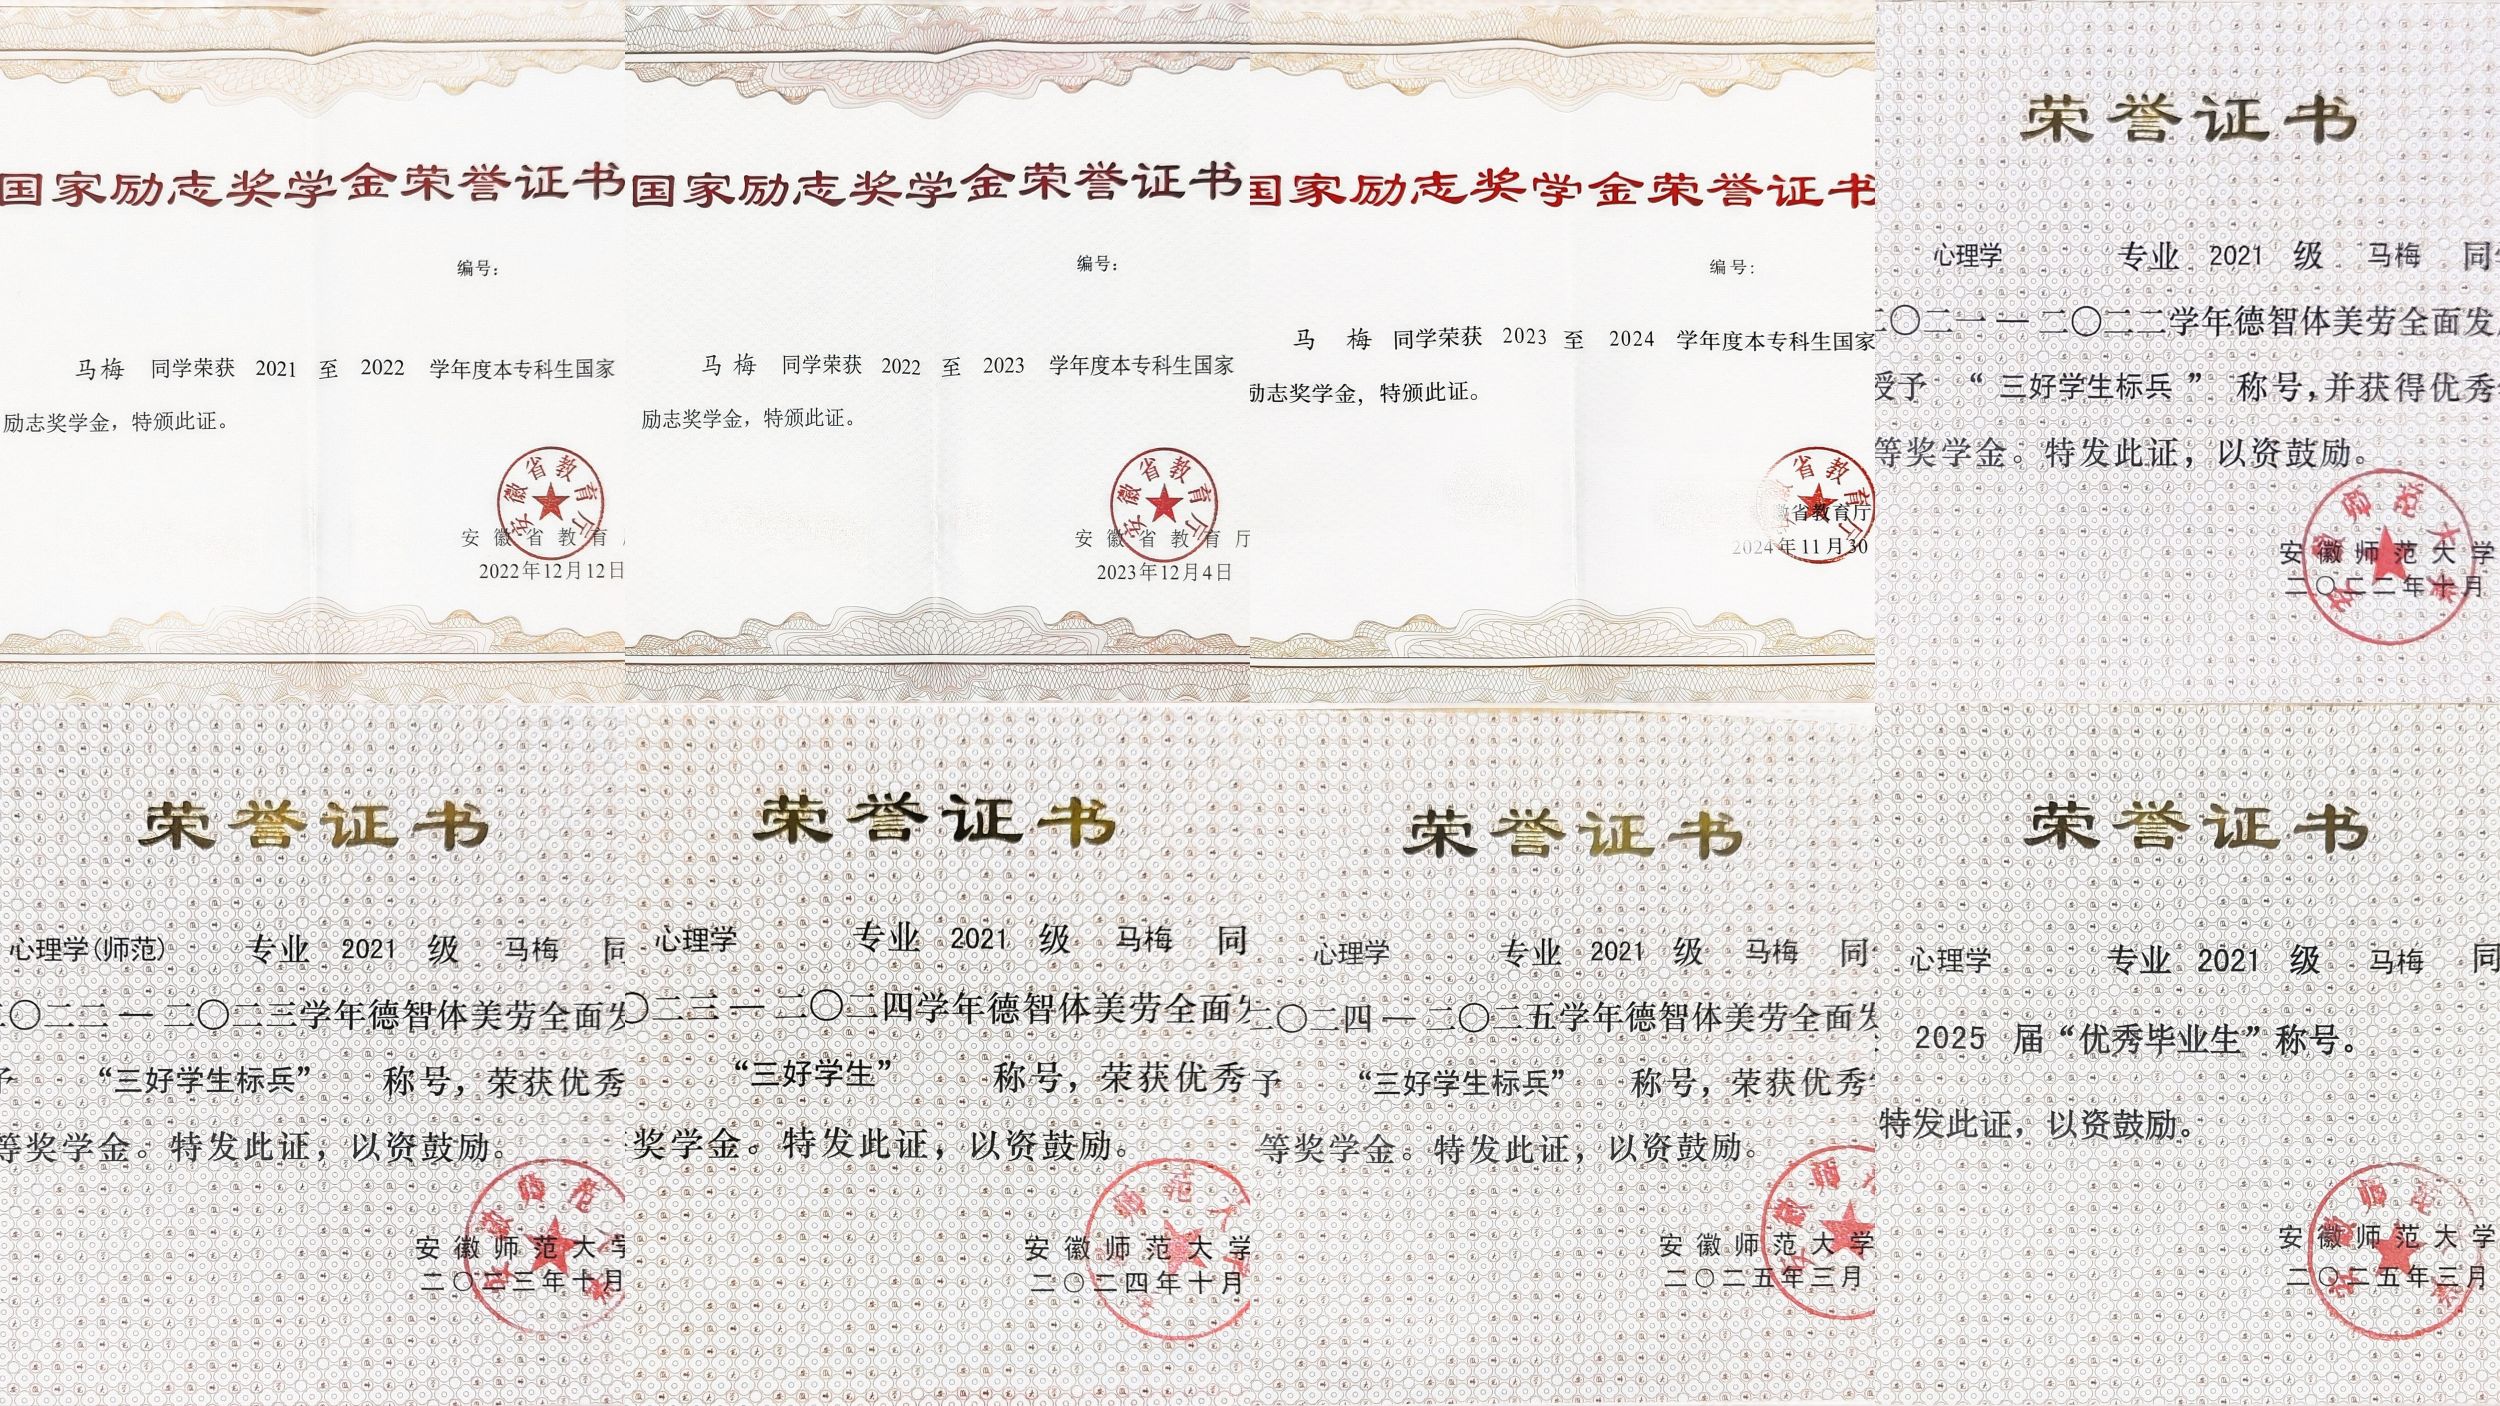 国家励志奖学金荣誉证书
编号：
马梅 同学荣获 2021 至 2022 学年度本专科生国家
励志奖学金，特颁此证。
安徽省教育厅
安徽省教育
2022年12月12日
国家励志奖学金荣誉证书
编号：
马梅 同学荣获 2022 至 2023 学年度本专科生国家
励志奖学金，特颁此证。
安徽省教育厅
安徽省教育厅
2023年12月4日
国家励志奖学金荣誉证书
编号：
马梅 同学荣获 2023 至 2024 学年度本专科生国家
励志奖学金，特颁此证。
省教育厅
省教育厅
2024年11月30
荣誉证书
心理学 专业 2021 级 马梅 同
二〇二一—二〇二二学年德智体美劳全面发
授予 “三好学生标兵” 称号，并获得优秀
等奖学金。特发此证，以资鼓励。
安徽师范大学
安徽师范大学
二〇二二年十月
荣誉证书
心理学(师范) 专业 2021 级 马梅 同
二〇二二—二〇二三学年德智体美劳全面发
予 “三好学生标兵” 称号，荣获优秀
等奖学金。特发此证，以资鼓励。
安徽师范大学
安徽师范大学
二〇二三年十月
荣誉证书
心理学 专业 2021 级 马梅 同
〇二三—二〇二四学年德智体美劳全面发
“三好学生” 称号，荣获优秀
奖学金。特发此证，以资鼓励。
安徽师范大学
二〇二四年十月
荣誉证书
心理学 专业 2021 级 马梅 同
二〇二四—二〇二五学年德智体美劳全面发
予 “三好学生标兵” 称号，荣获优秀
等奖学金。特发此证，以资鼓励。
安徽师范
安徽师范大学
二〇二五年三月
荣誉证书
心理学 专业 2021 级 马梅 同
2025 届“优秀毕业生”称号。
特发此证，以资鼓励。
安徽师范大学
安徽师范大学
二〇二五年三月